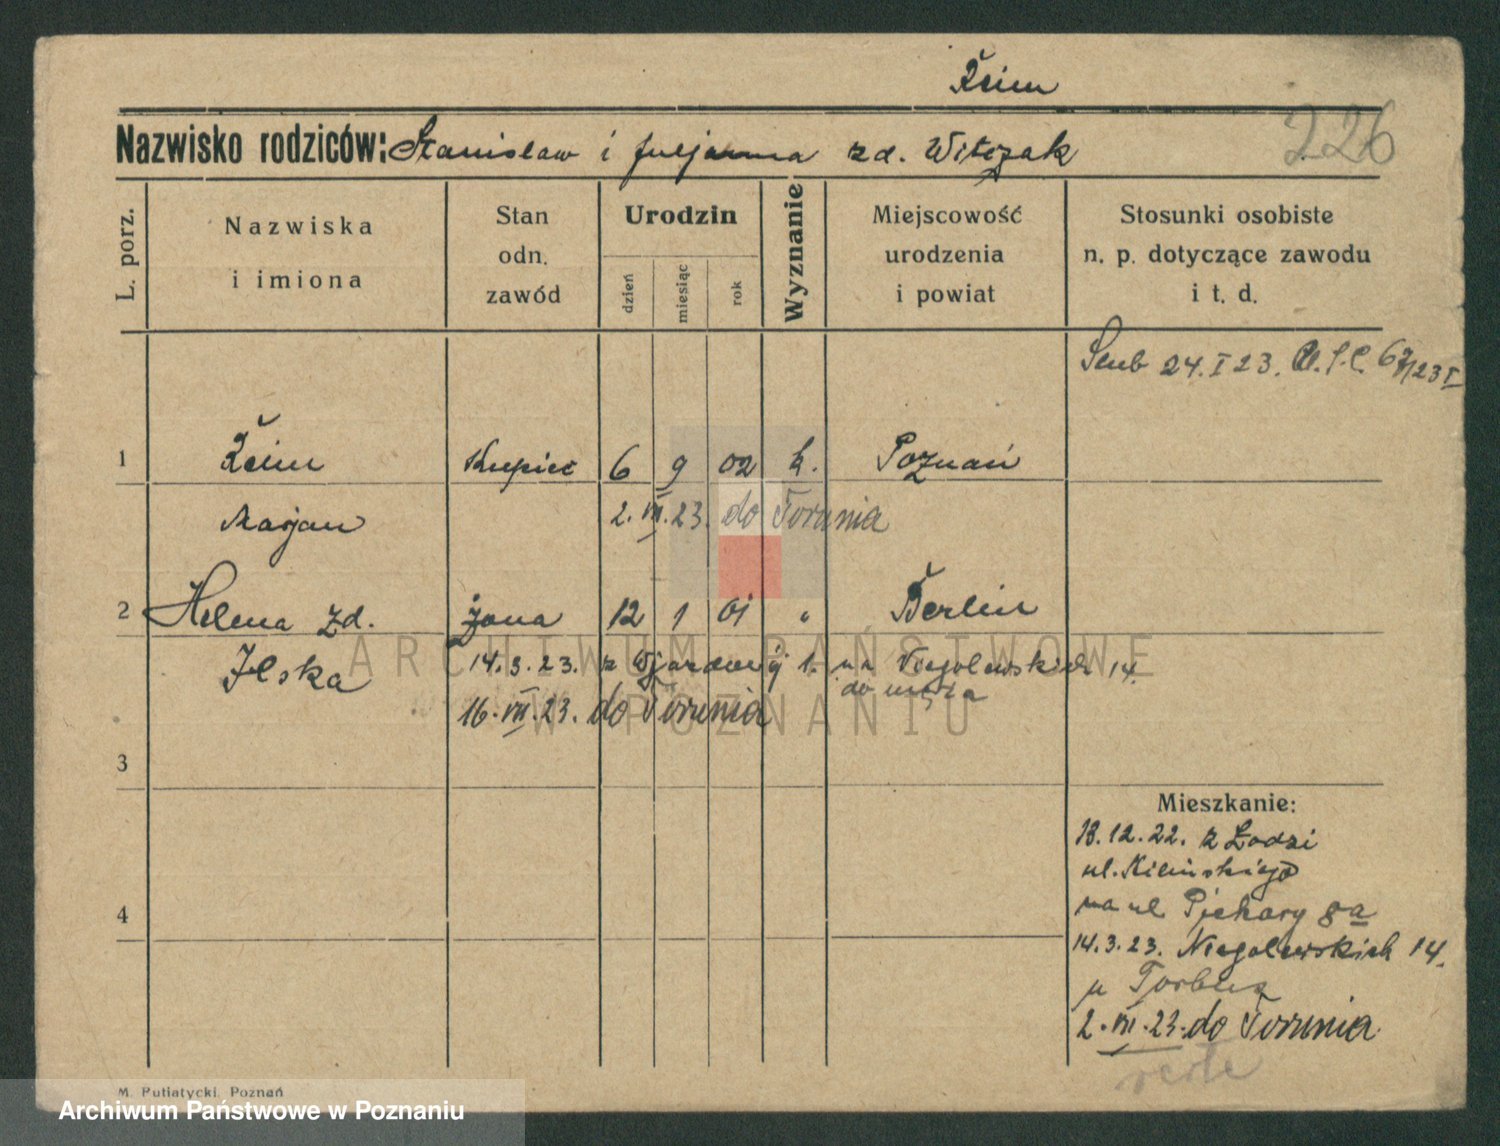 226
Nazwisko rodziców: Stanisław i Juljanna zd. Witczak
L. porz.
Nazwiska i imiona
Stan odn. zawód
Urodzin
dzień
miesiąc
rok
Wyznanie
Miejscowość urodzenia i powiat
Stosunki osobiste n. p. dotyczące zawodu i t. d.
24. I 23.
1
Kupiec 6 9 02 k. Poznań
Marjan
2. VII. 23. do Torunia
2 Helena zd. żona 12 1 01 " Berlin
Ilska
14.3.23. z Wjazdowej 1. na Niegolewskich 14.
do męża
16. VII. 23. do Torunia
3
4
Mieszkanie:
12.22. z Łodzi
ul. Kilińskiego
na ul Piekary 8a
14.3.23. Niegolewskich 14.
u
2. VII. 23. do Torunia
M. Putiatycki, Poznań
ARCHIWUM PAŃSTWOWE
W POZNANIU
Archiwum Państwowe w Poznaniu